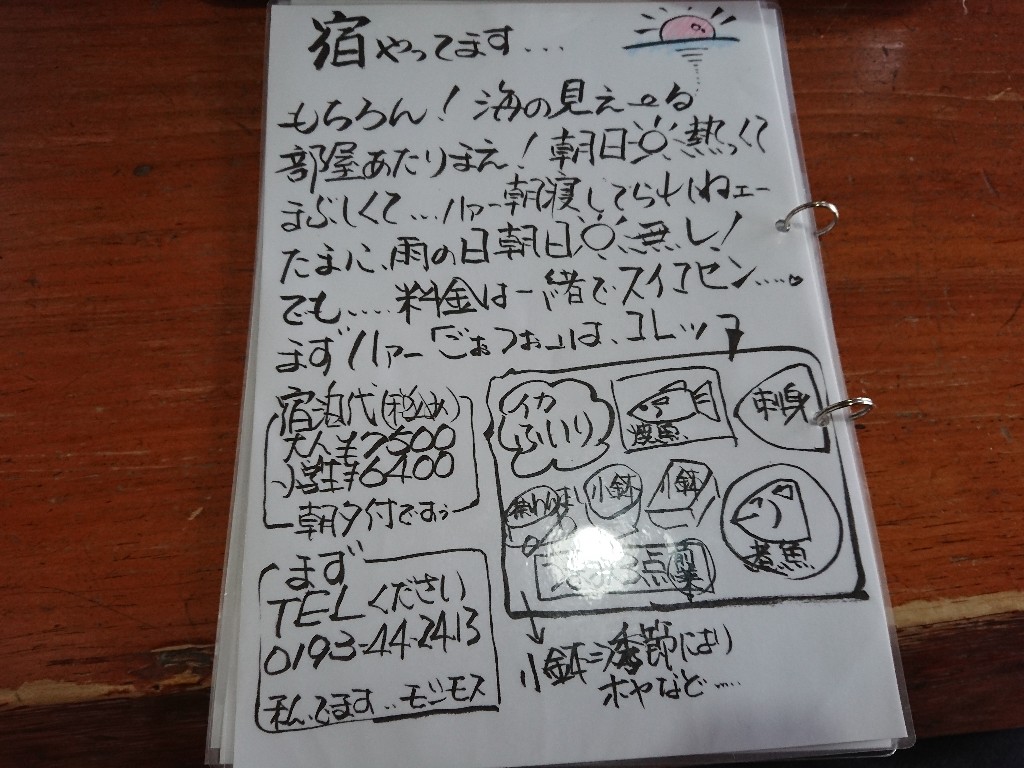 宿やってます...
もちろん！海の見える
部屋あたりまえ！朝日熱くて
まぶしくて...ハァー朝寝してられねェー
たまに、雨の日朝日無し！
でも....料金は一緒でスイマセン.....。
まずハァー「ごぉつぉ」は、コレッ
宿泊代(税込め)
大人¥7500
小学生¥6400
朝夕付ですぅ
イカ
ふいり
焼魚
刺身
小鉢
小鉢
煮魚
3点
まず
TELください
0193-44-2413
私、でます...モシモス
小鉢=季節により
ホヤなど....